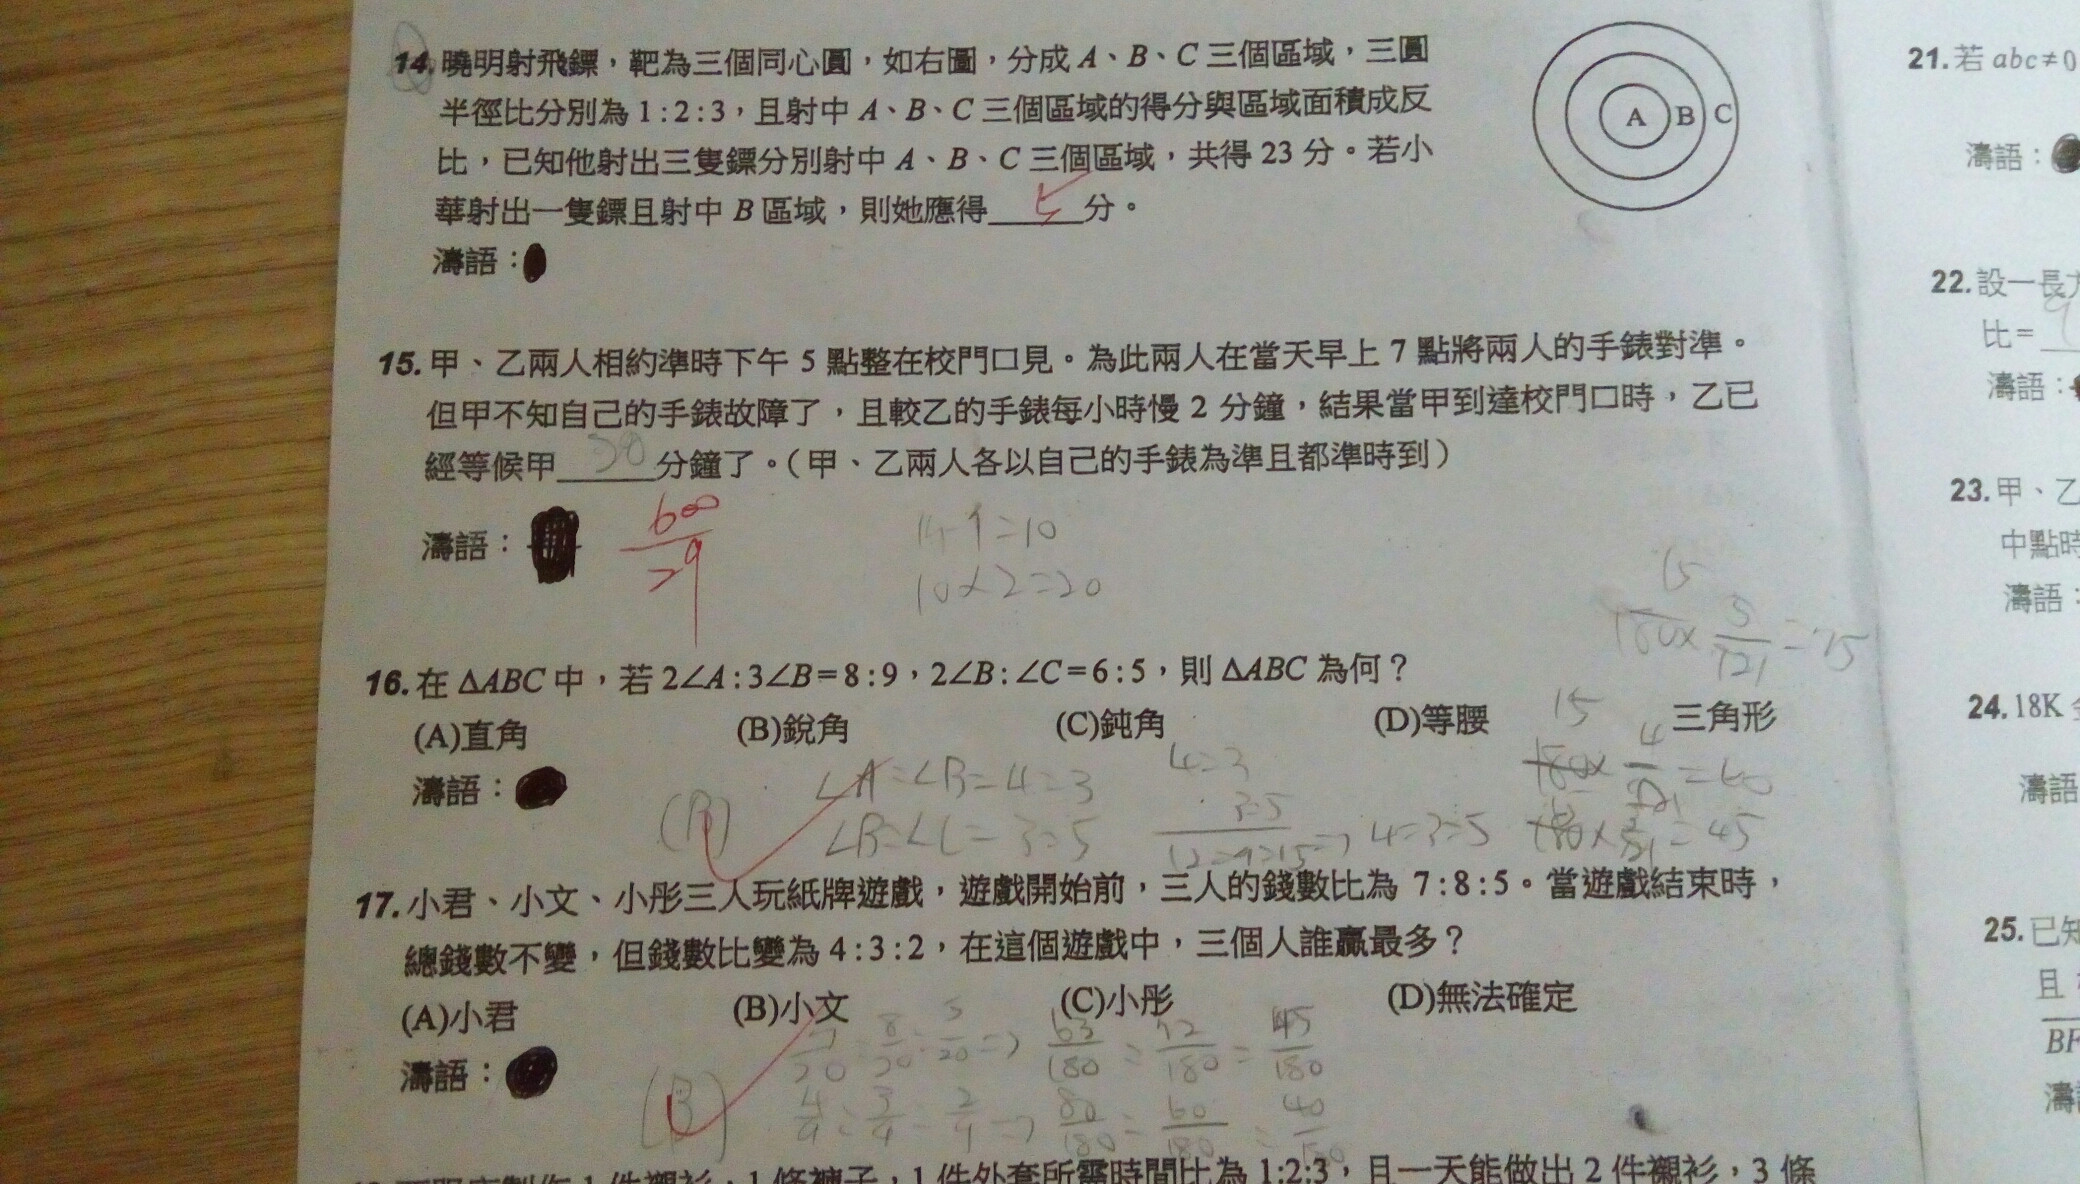 14. 曉明射飛鏢，靶為三個同心圓，如右圖，分成 A、B、C 三個區域，三圓
半徑比分別為 1:2:3，且射中 A、B、C 三個區域的得分與區域面積成反
比，已知他射出三隻鏢分別射中 A、B、C 三個區域，共得 23 分。若小
華射出一隻鏢且射中 B 區域，則她應得 5 分。
A B C
濤語：
15. 甲、乙兩人相約準時下午 5 點整在校門口見。為此兩人在當天早上 7 點將兩人的手錶對準。
但甲不知自己的手錶故障了，且較乙的手錶每小時慢 2 分鐘，結果當甲到達校門口時，乙已
經等候甲 分鐘了。（甲、乙兩人各以自己的手錶為準且都準時到）
濤語：
600
29
10×2=20
15
180× 5/12 =75
16. 在 ΔABC 中，若 2∠A:3∠B=8:9，2∠B:∠C=6:5，則 ΔABC 為何？
(A)直角 (B)銳角 (C)鈍角 (D)等腰 三角形
濤語：
∠A:∠B=4:3 4:3 15 180× 4/12 =60
∠B:∠C=3:5 3:5 4:3:5 =45
12:9:15
17. 小君、小文、小彤三人玩紙牌遊戲，遊戲開始前，三人的錢數比為 7:8:5。當遊戲結束時，
總錢數不變，但錢數比變為 4:3:2，在這個遊戲中，三個人誰贏最多？
(A)小君 (B)小文 (C)小彤 (D)無法確定
濤語：
7/20 : 8/20 : 5/20 ⇒ 63/180 : 72/180 : 45/180
80/180 : 60/180 : 40/180
1 件襯衫，1 條褲子，1 件外套所需時間比為 1:2:3，且一天能做出 2 件襯衫，3 條
21. 若 abc≠0
濤語：
22. 設一長方
比=
濤語：
23. 甲、乙
中點時
濤語：
24. 18K
濤語
25. 已知
且
BF